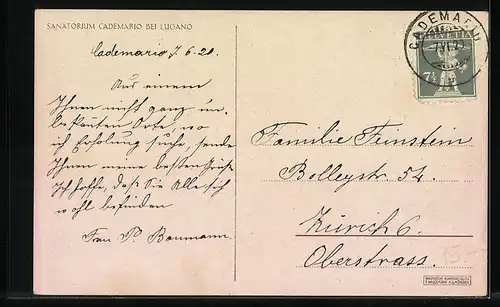 SANATORIUM CADEMARIO BEI LUGANO
Cademario 7.6.20.
Aus einem
Ihnen nicht ganz un-
bekannten Orte, wo
ich Erholung suche, sende
Ihnen meine besten Grüße
Ich hoffe, daß Sie Alle sich
wohl befinden
Frau P. Baumann.
CADEMARIO
HELVETIA
7½
Familie Feinstein
Bolleystr. 54.
Zürich 6.
Oberstrass.